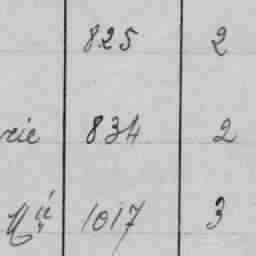 825 2
834 2
1017 3